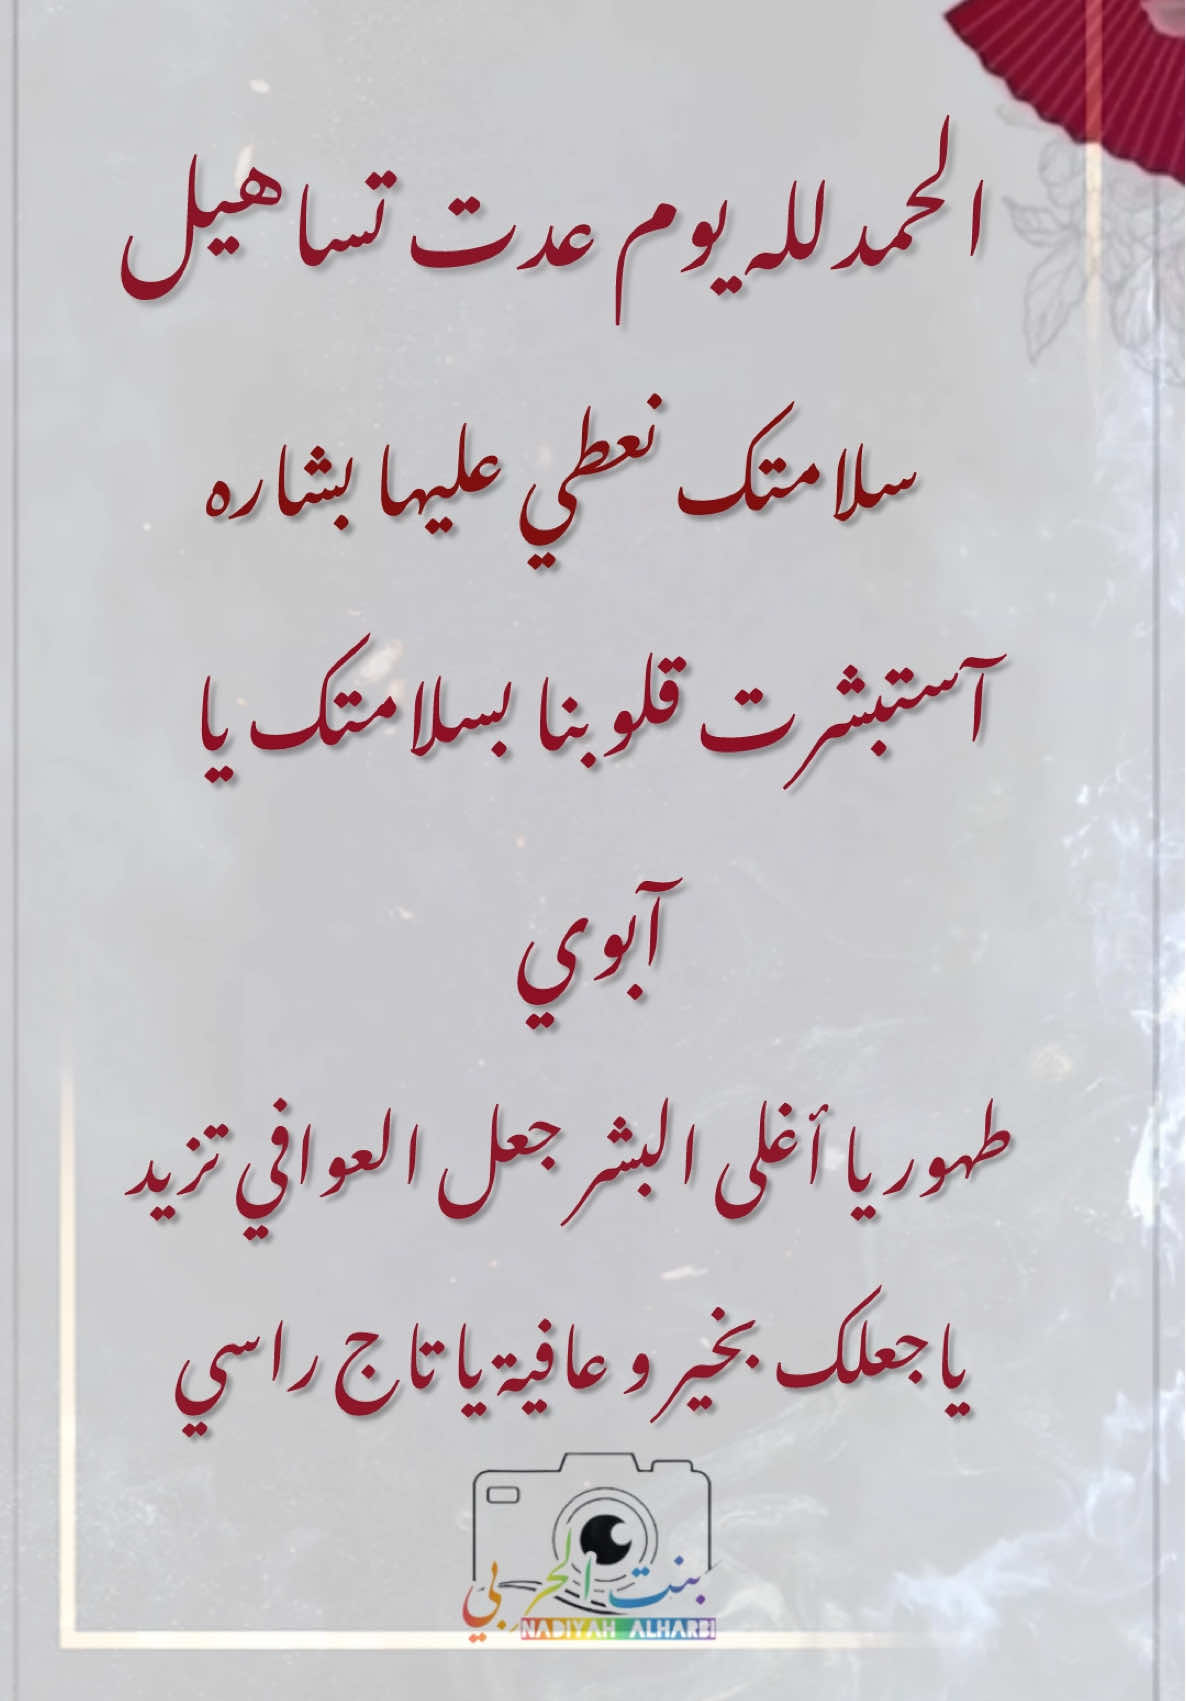 الحمدلله يوم عدت تساهيل
سلامتك نعطي عليها بشاره
آستبشرت قلوبنا بسلامتك يا
آبوي
طهور يا أغلى البشر جعل العوافي تزيد
ياجعلك بخير و عافية يا تاج راسي
بنت الحربي
NADIYAH ALHARBI